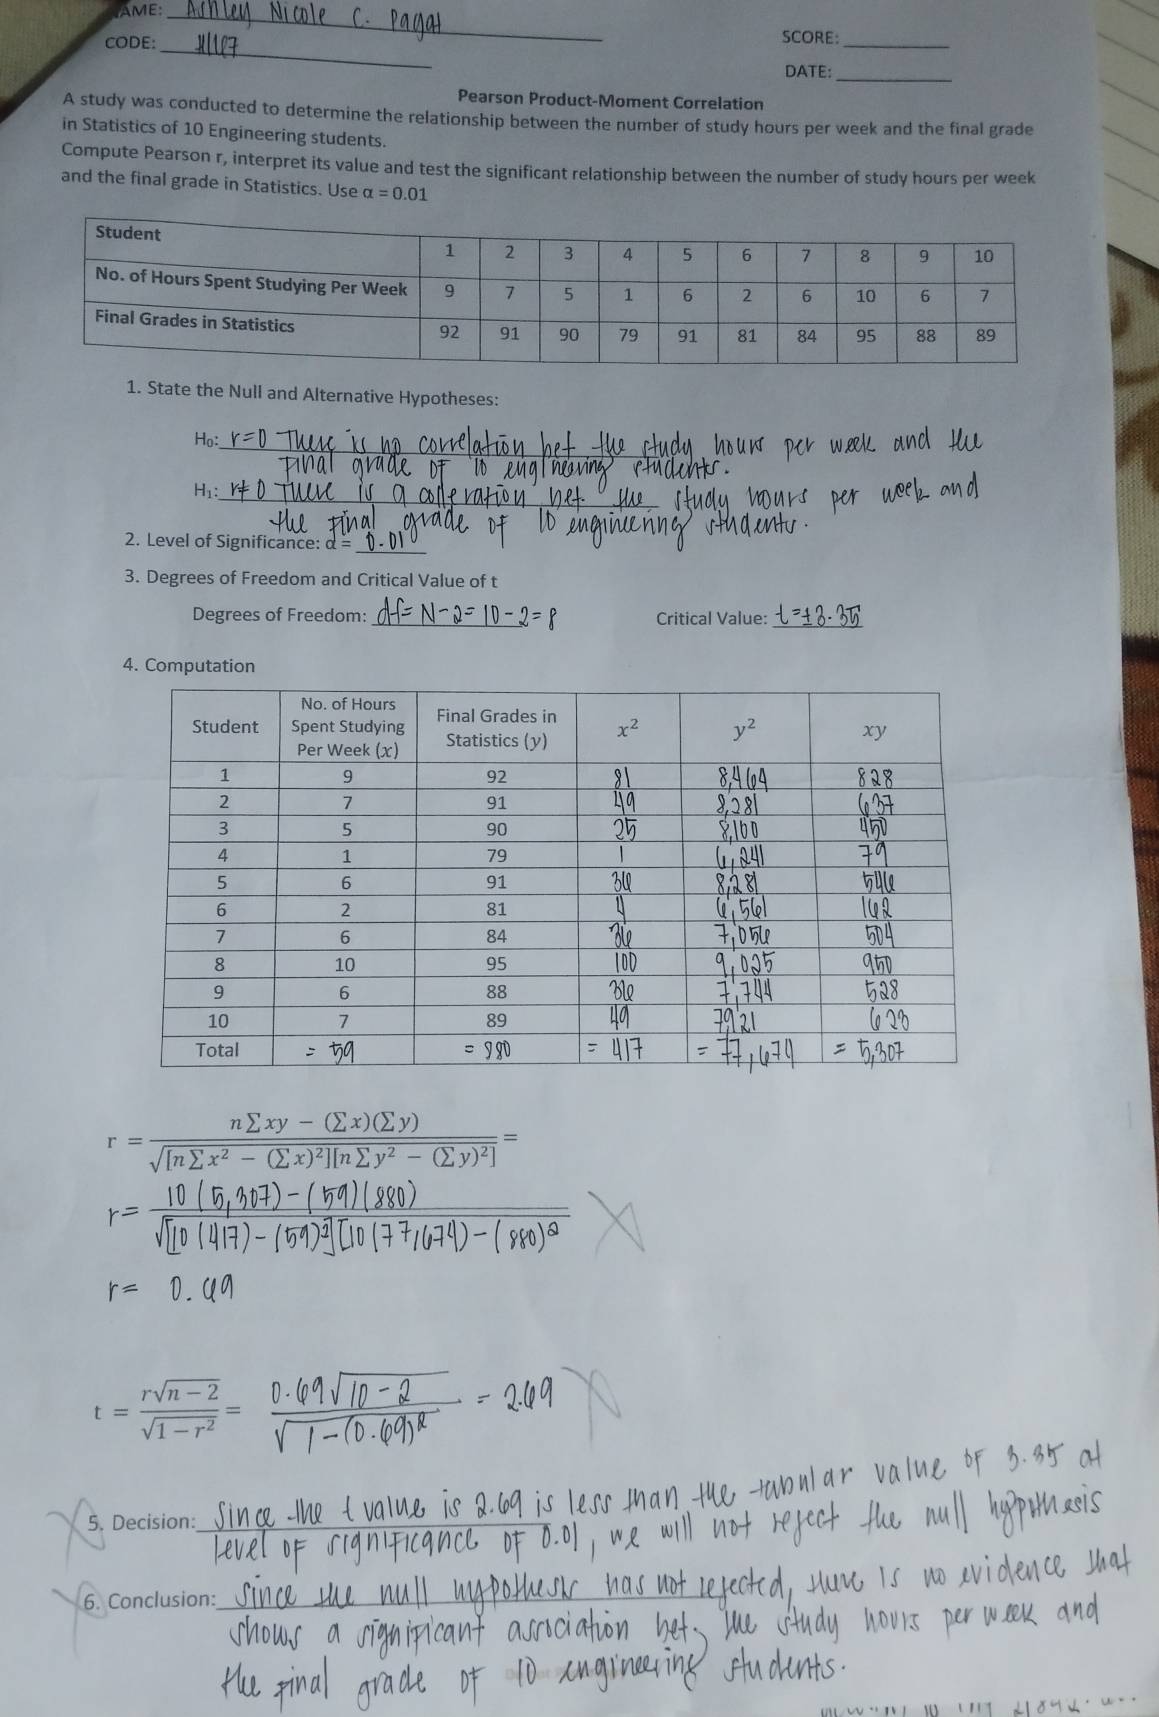 NAME: Ashley Nicole C. Pagat
CODE:
SCORE:
DATE:
Pearson Product-Moment Correlation
A study was conducted to determine the relationship between the number of study hours per week and the final grade
in Statistics of 10 Engineering students.
Compute Pearson r, interpret its value and test the significant relationship between the number of study hours per week
and the final grade in Statistics. Use α = 0.01
Student 1 2 3 4 5 6 7 8 9 10
No. of Hours Spent Studying Per Week 9 7 5 1 6 2 6 10 6 7
Final Grades in Statistics 92 91 90 79 91 81 84 95 88 89
1. State the Null and Alternative Hypotheses:
H₀: r=0 There is no correlation bet the study hours per week and the
final grade of 10 engineering students.
H₁: r≠0 There is a colleration bet. the study hours per week and
the final grade of 10 engineering students.
2. Level of Significance: α = 0.01
3. Degrees of Freedom and Critical Value of t
Degrees of Freedom: df = N-2 = 10-2 = 8 Critical Value: t = ±3.35
4. Computation
Student No. of Hours Spent Studying Per Week (x) Final Grades in Statistics (y) x² y² xy
1 9 92 81 8,464 828
2 7 91 49 8,281 637
3 5 90 25 8,100 450
4 1 79 1 6,241 79
5 6 91 36 8,281 546
6 2 81 4 6,561 162
7 6 84 36 7,056 504
8 10 95 100 9,025 950
9 6 88 36 7,744 528
10 7 89 49 7921 623
Total = 59 = 880 = 417 = 77,674 = 5,307
r = n∑xy − (∑x)(∑y) / √[n∑x² − (∑x)²][n∑y² − (∑y)²] =
r = 10(5,307) - (59)(880) / √[10(417) - (59)²][10(77,674) - (880)²
r = 0.69
t = r√n − 2 / √1 − r² = 0.69√10-2 / √1-(0.69)² = 2.69
5. Decision: Since the t value is 2.69 is less than the tabular value of 3.35 at
level of significance of 0.01, we will not reject the null hypothesis
6. Conclusion: Since the null hypothesis has not rejected, there is no evidence that
shows a significant association bet. the study hours per week and
the final grade of 10 engineering students.